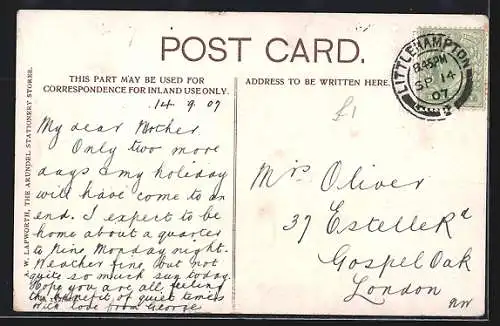 POST CARD.
THIS PART MAY BE USED FOR
CORRESPONDENCE FOR INLAND USE ONLY.
14 . 9 . 07
My dear Mother.
Only two more
days & my holiday
will have come to an
end. I expect to be
home about a quarter
to Nine Monday night.
Weather fine but not
quite so much sun today.
Hope you are all feeling
the benefit of quiet times
With love from George
A. W. LAPWORTH, THE ARUNDEL STATIONERY STORES.
ADDRESS TO BE WRITTEN HERE.
£1
Mrs Oliver
37 Estelle Rd
Gospel Oak
London
NW
LITTLEHAMPTON
8.45PM
SP 14
07